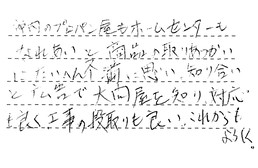 市内のプロパン屋もホームセンターも
なれあいと商品の取りあつかい
にたいへん不満に思い知り合い
と広告で大同屋を知り、対応
も良く工事の段取りも良い、これからも
よろしく。